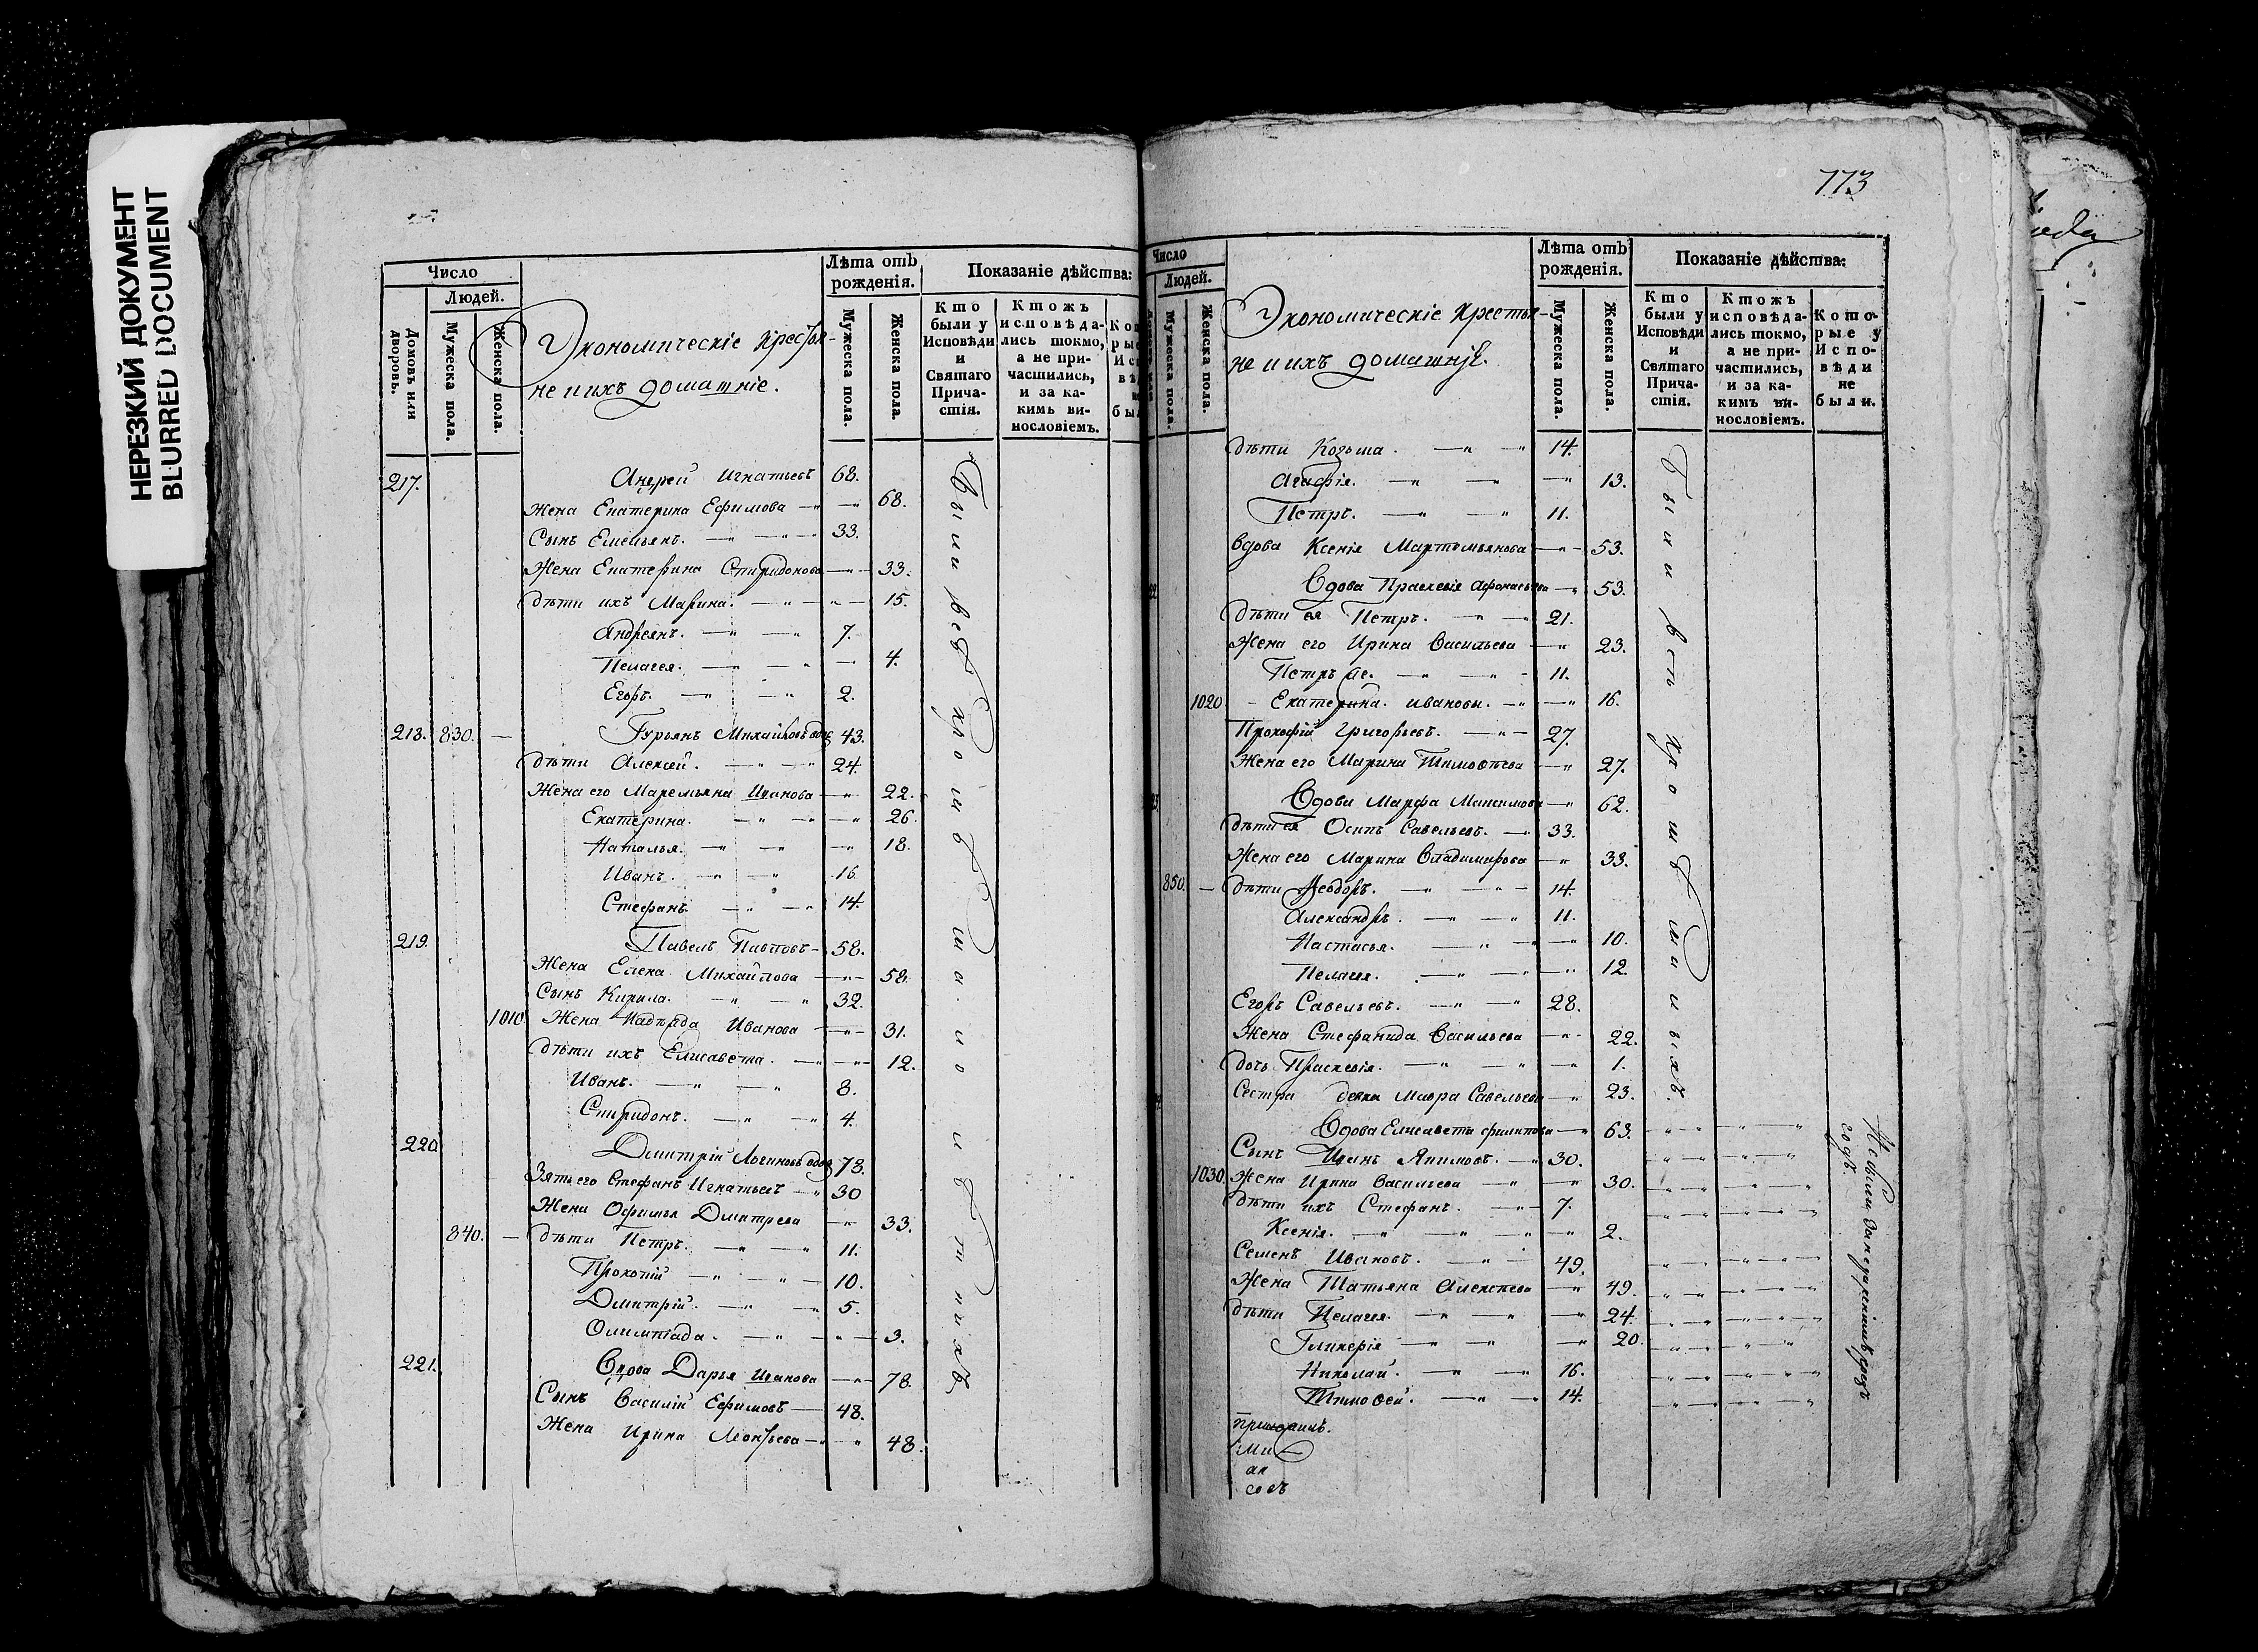 НЕРЕЗКИЙ ДОКУМЕНТ
BLURRED DOCUMENT
Число
Людей.
Домовъ или дворовъ.
Мужеска пола.
Женска пола.
Экономическіе крестья-
не и ихъ домашніе.
Лѣта отъ рожденія.
Мужеска пола.
Женска пола.
Показаніе дѣйства:
Кто были у Исповѣди и Святаго Причастія.
Ктожъ исповѣда-лись токмо, а не при-частились, и за ка-кимъ ви-нословіемъ.
217. Андрей Игнатьевъ 68.
Жена Екатерина Ефимова 68.
Сынъ Емельянъ. 33.
Жена Екатерина Спиридонова 33.
Дѣти ихъ Марина. 15.
Андреянъ. 7.
Пелагея. 4.
Егоръ. 2.
218. 830. Гурьянъ Михайловъ вдов 43.
Дѣти Алексей. 24.
Жена его Маремьяна Иванова 22.
Екатерина. 26.
Наталья. 18.
Иванъ. 16
Стефанъ 14.
219. Павелъ Павловъ 58.
Жена Елена Михайлова 58.
Сынъ Кирила. 32.
1010. Жена Надѣжда Иванова 31.
Дѣти ихъ Елисавета. 12.
Иванъ. 8.
Спиридонъ. 4.
220. Дмитрій Логиновъ вдов 78.
Зять его Стефанъ Игнатьевъ 30
Жена Офимья Дмитрева 33.
840. Дѣти Петръ. 11.
Прокопій 10.
Дмитрій. 5.
Олимпіада. 3.
221. Вдова Дарья Иванова 78.
Сынъ Василій Ефимовъ 48.
Жена Ирина Леонтьева 48.
773
Число
Людей.
Мужеска пола.
Женска пола.
Экономическіе крестья-
не и ихъ домашніе.
Лѣта отъ рожденія.
Мужеска пола.
Женска пола.
Показаніе дѣйства:
Кто были у Исповѣди и Святаго Прича-стія.
Ктожъ исповѣда-лись токмо, а не при-частились, и за ка-кимъ ви-нословіемъ.
Кото-рые у Испо-вѣди не были.
Дѣти Козьма. 14.
Агафія. 13.
Петръ. 11.
Вдова Ксенія Мартемьянова 53.
Вдова Праскевія Афонасьева 53.
Дѣти ея Петръ. 21.
Жена его Ирина Васильева 23.
Петръ же. 11.
1020 Екатерина. Ивановы. 16.
Прокофій Григорьевъ. 27.
Жена его Марина Тимофѣева 27.
Вдова Марфа Максимова 62.
Дѣти ея Осипъ Савельевъ. 33.
Жена его Марина Владимирова 33.
850. Дѣти Ѳеодоръ. 14.
Александръ. 11.
Настасья. 10.
Пелагея. 12.
Егоръ Савельевъ. 28.
Жена Стефанида Васильева 22.
Дочь Праскевія. 1.
Сестра девка Мавра Савельева 23.
Вдова Елисавета Филипова 63.
Сынъ Иванъ Якимовъ. 30.
1030. Жена Ирина Васильева 30.
Дѣти ихъ Стефанъ. 7.
Ксенія. 2.
Семенъ Ивановъ. 49.
Жена Татьяна Алексѣева 49.
Дѣти Пелагея. 24.
Гликерія 20.
Николай. 16.
Тимофей. 14.